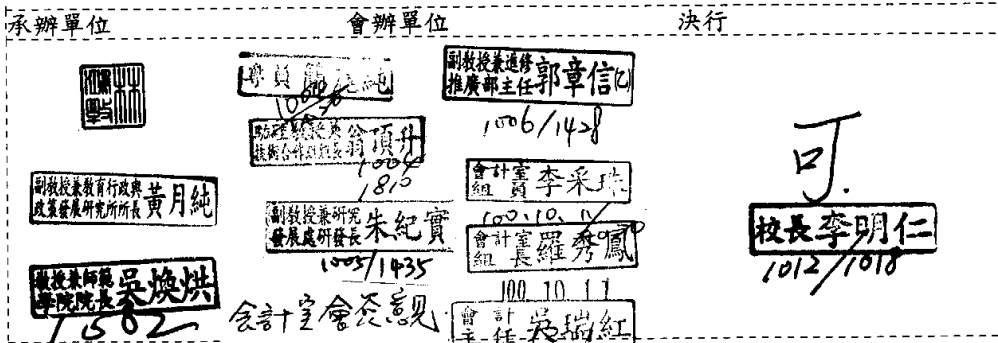 承辦單位 會辦單位 決行
副教授兼教育行政與
政策發展研究所所長 黃月純
教授兼師範
學院院長 吳煥烘
1502
專員 純
助理教授兼
技術合作組組長 翁頂升
1004
1810
副教授兼研究
發展處研發長 朱紀實
1005/1435
會計室會簽意見
副教授兼進修
推廣部主任 郭章信
1006/1428
會計室
組員 李采珠
100.10.11
會計室
組長 羅秀鳳
100.10.11
會計
主任 吳瑞紅
可.
校長 李明仁
1012/1018